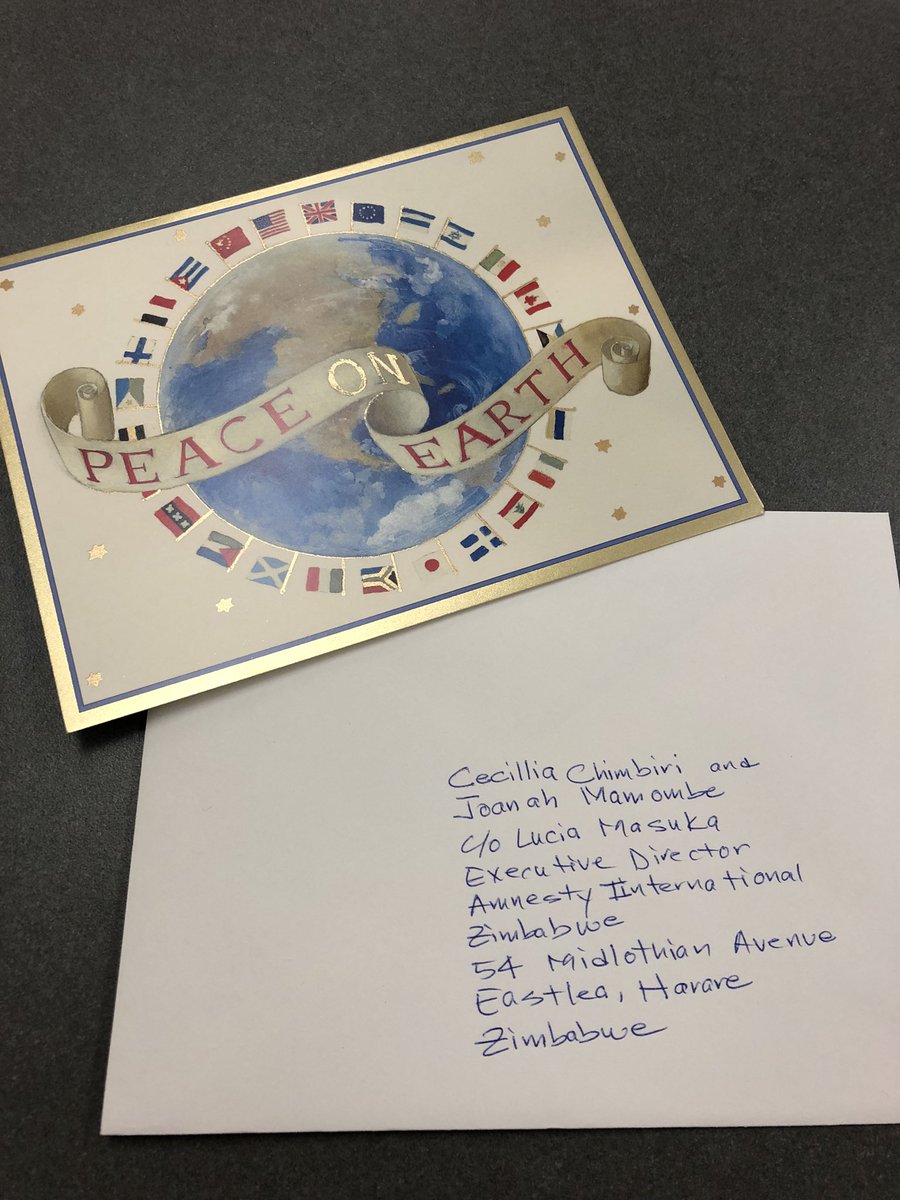 PEACE ON EARTH
Cecillia Chimbiri and
Joanah Mamombe
c/o Lucia Masuka
Executive Director
Amnesty International
Zimbabwe
54 Midlothian Avenue
Eastlea, Harare
Zimbabwe